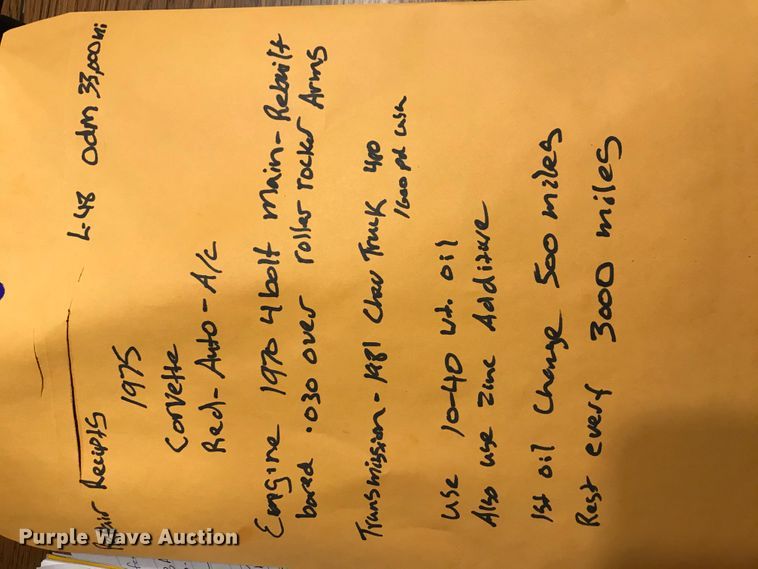 Repair Recipts L-48 Odm 33,000 mi
1975
Corvette
Red - Auto - A/C
Engine 1970 4 bolt main - Rebuilt
bored .030 over roller rocker Arms
Transmission - 1981 Chev Truck 400
1600 pd cash
use 10-40 wt. oil
Also use Zinc Additive
1st oil change 500 miles
Rest every 3000 miles
Purple Wave Auction